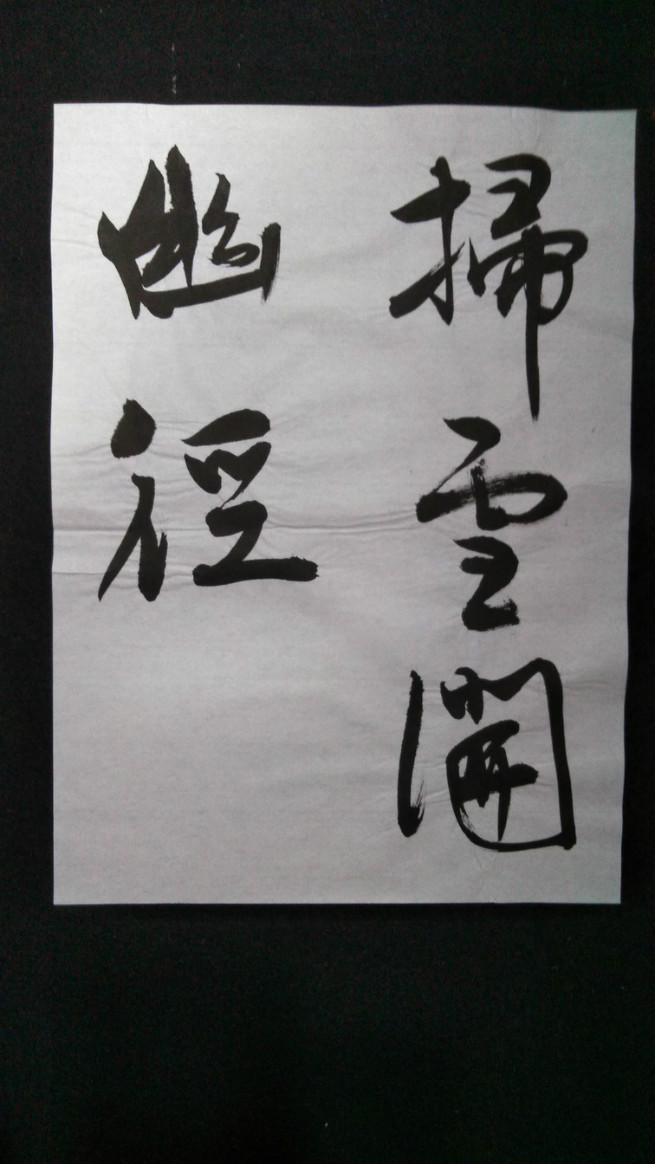 掃雲開
幽徑